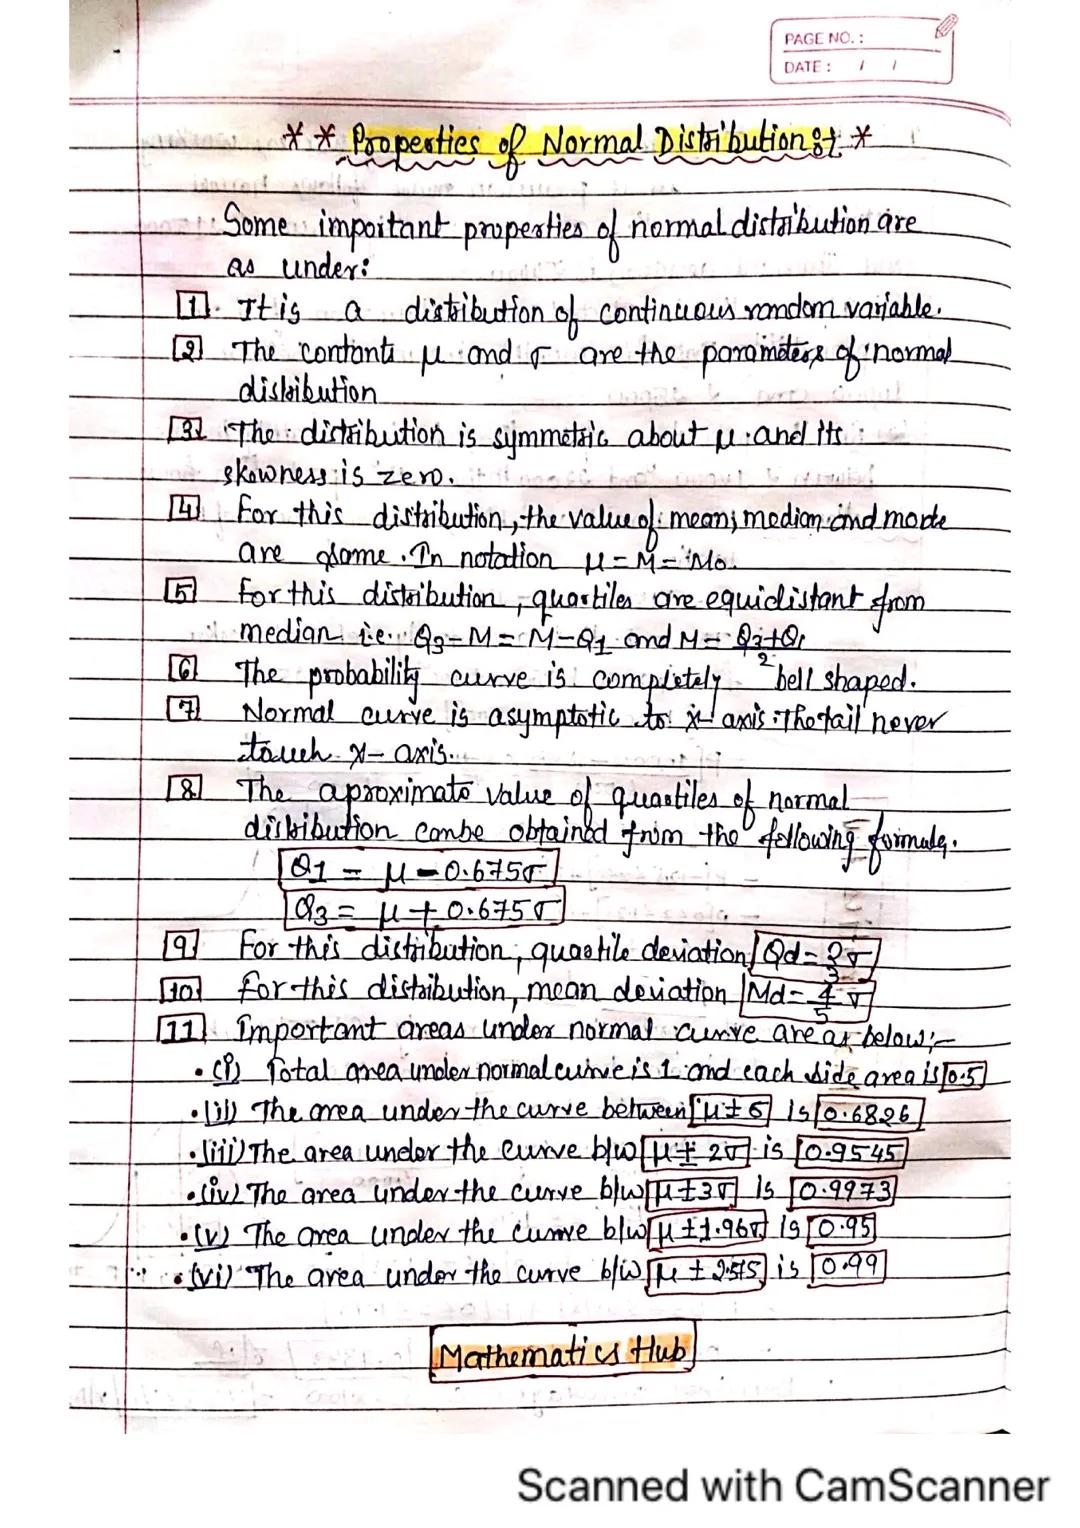 PAGE NO. :
DATE : / /
** Properties of Normal Distribution :- *
Some important properties of normal distribution are
as under:
1. It is a distribution of continuous random variable.
2 The contants μ and σ are the parameters of normal
distribution
3 The distribution is symmetric about μ and its
skewness is zero.
4 For this distribution, the value of mean, median and mode
are same. In notation μ = M = Mo.
5 For this distribution, quartiles are equidistant from
median i.e. Q3-M = M-Q1 and M = Q3+Q1
2
6 The probability curve is completely bell shaped.
7 Normal curve is asymptotic to x- axis. The tail never
touch x- axis.
8 The aproximate value of quartiles of normal
distribution canbe obtained from the following formula.
Q1 = μ - 0.675σ
Q3 = μ + 0.675σ
9 For this distribution, quartile deviation Qd = 2/3 σ
10 For this distribution, mean deviation Md = 4/5 σ
11 Important areas under normal curve are as below:-
• (i) Total area under normal curve is 1 and each side area is 0.5
• (ii) The area under the curve between μ ± σ is 0.6826
• (iii) The area under the curve b/w μ ± 2σ is 0.9545
• (iv) The area under the curve b/w μ ± 3σ is 0.9973
• (v) The area under the curve b/w μ ± 1.96σ is 0.95
• (vi) The area under the curve b/w μ ± is 0.99
Mathematics Hub
Scanned with CamScanner